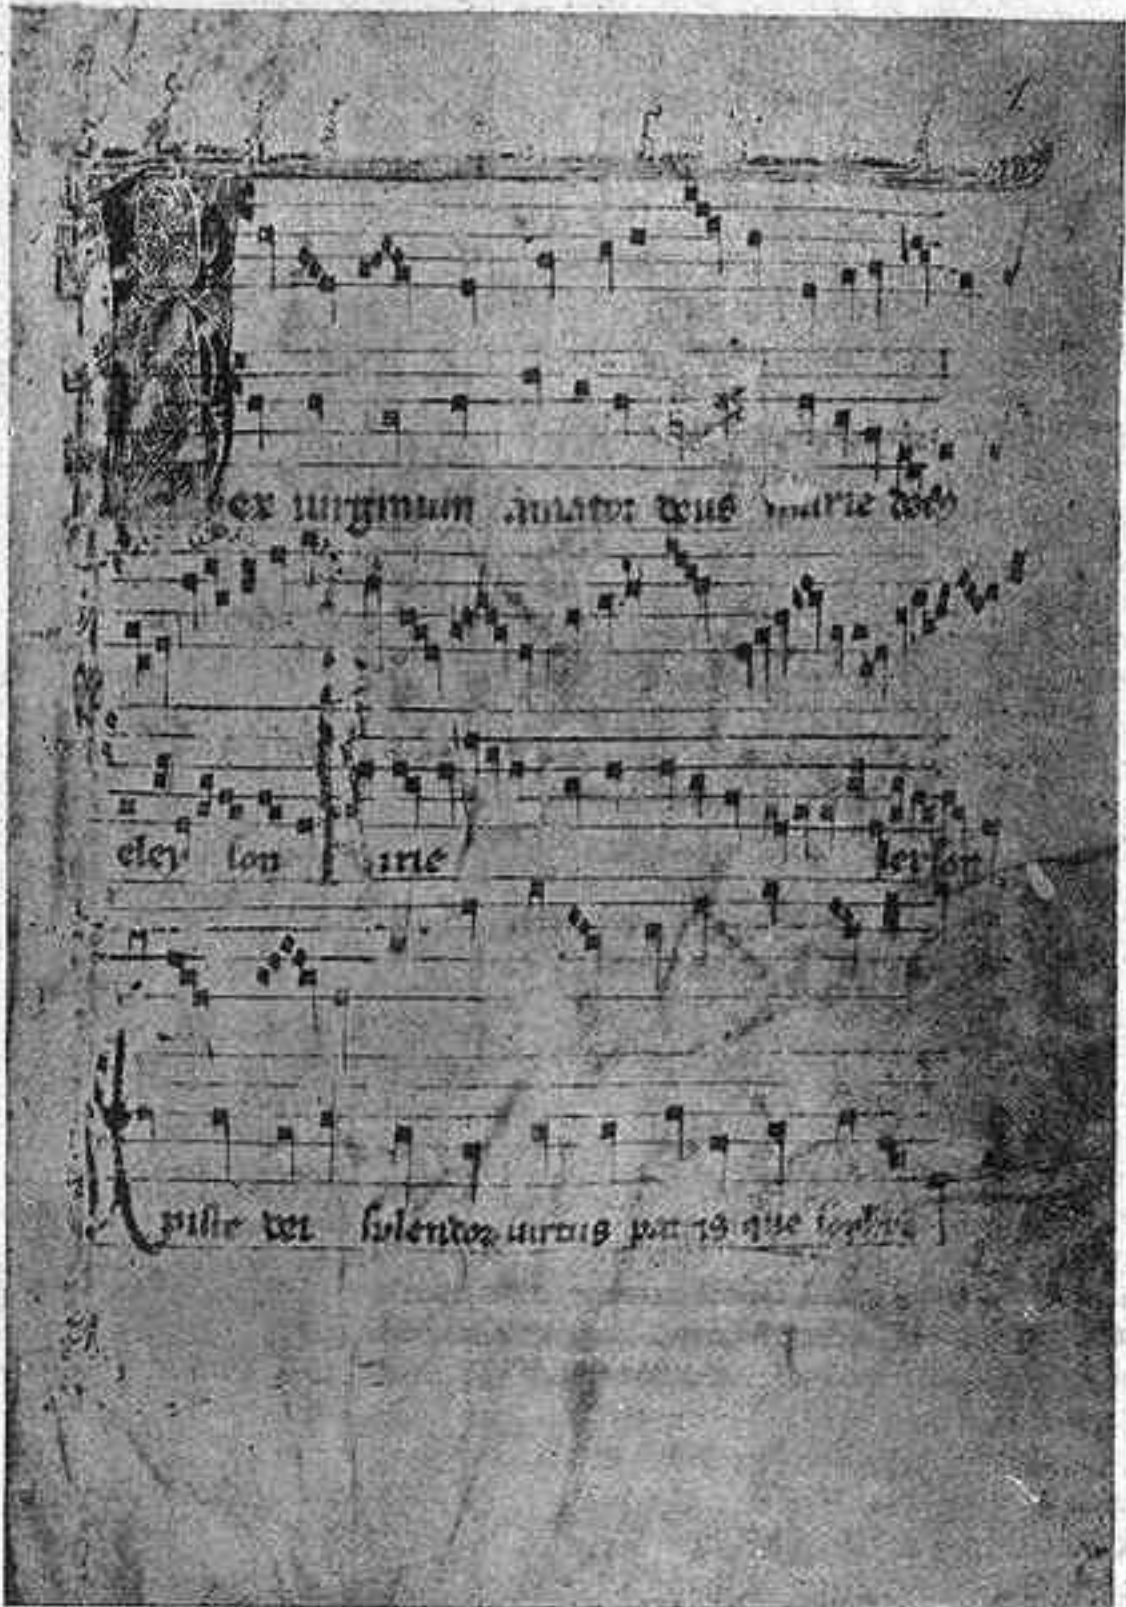 Rex uirginum amator deus marie decus
eley son irie leyson
xpiste dei splendor uirtus patris que sophya